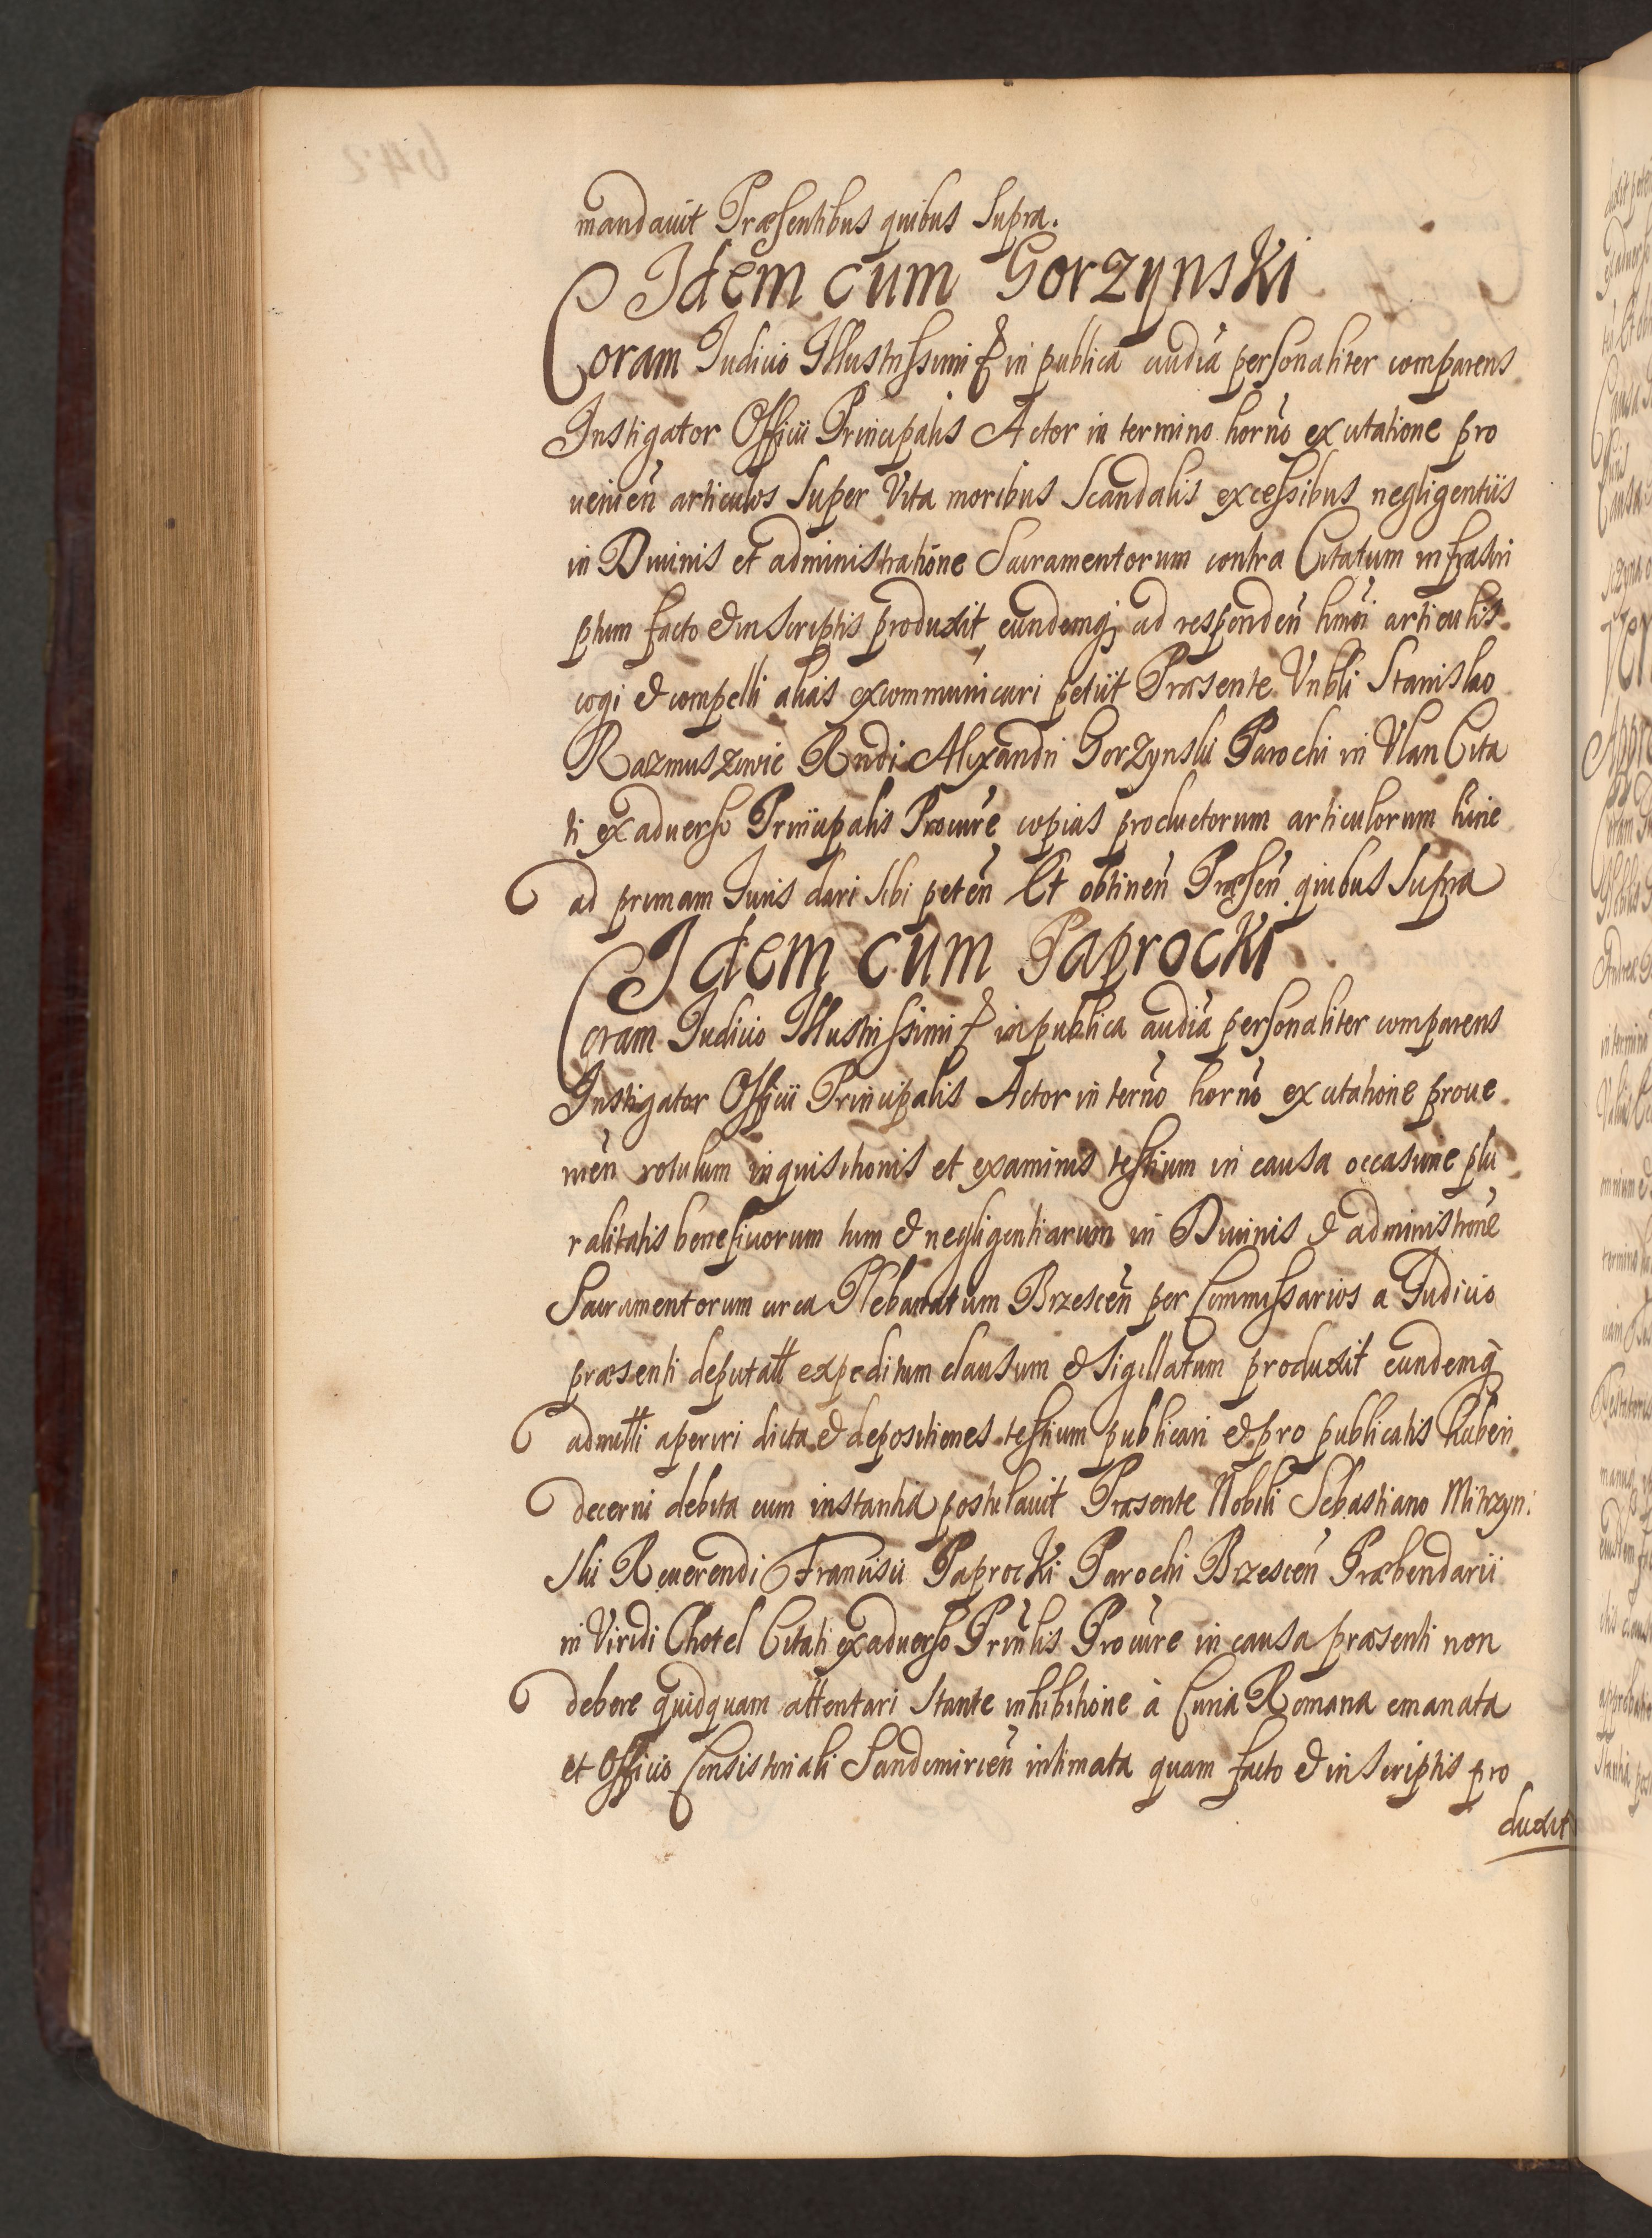 mandauit Præsentibus quibus Supra.
Idem cum Gorzynski
Coram Iudicio Illustrissimi & in publica audiã personaliter comparens
Instigator Officii Principalis Actor in termino horñο ex citatione pro
ueniẽn articulos Super Vita moribus Scandalis excessibus negligentiis
in Diuinis et administratione Sacramentorum contra Citatum infrascri
ptum facto & in Scriptis produxit eundemq ad respondeñ hmõi articulis
cogi & compelli alias excommunicari petiit Præsente Vnbli Stanislao
Razmuszowic Rndi Alexandri Gorzynski Parochi in Vlan Cita
ti ex aduerso Principalis Procũre copias productorum articulorum hinc
ad primam Iuris dari Sibi petẽn Et obtineñ Præseñ quibus Supra
Idem cum Paprocki
Coram Iudicio Illustrissimi & in publica audiã personaliter comparens
Instigator Officii Principalis Actor in terño horño ex citatione proue
nieñ rotulum inquisitionis et examinis testium in causa occasione plu
ralitatis beneficiorum tum & negligentiarum in Diuinis & administrõne
Sacramentorum circa Plebanatum Brzesceñ per Commissarios a Iudicio
præsenti deputatt expeditum clausum & Sigillatum produxit eundemq
admitti aperiri dicta & depositiones testium publicari & pro publicatis haberi
decerni debita cum instantia postulauit Præsente Nobili Sebastiano Mirzyn:
Ski Reuerendi Francisci Paprocki Parochi Brzesceñ Præbendarii
in Viridi Chotel Citati ex aduerso Prinlis Procũre in causa præsenti non
debere quidquam attentari Stante inhibitione à Curia Romana emanata
et Officio Consistoriali Sandomirieñ intimata quam facto & in Scriptis pro
duxit